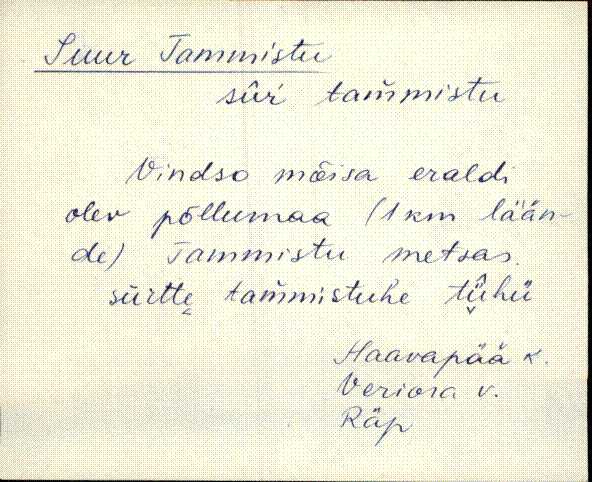 Suur Tammistu
sûŕ tam̆mistu
Vindso mõisa eraldi
olev põllumaa (1 km lään-
de) Tammistu metsas.
sûrtte̬ tam̆mistuhe tü̬̂hü
Haavapää k.
Veriora v.
Räp